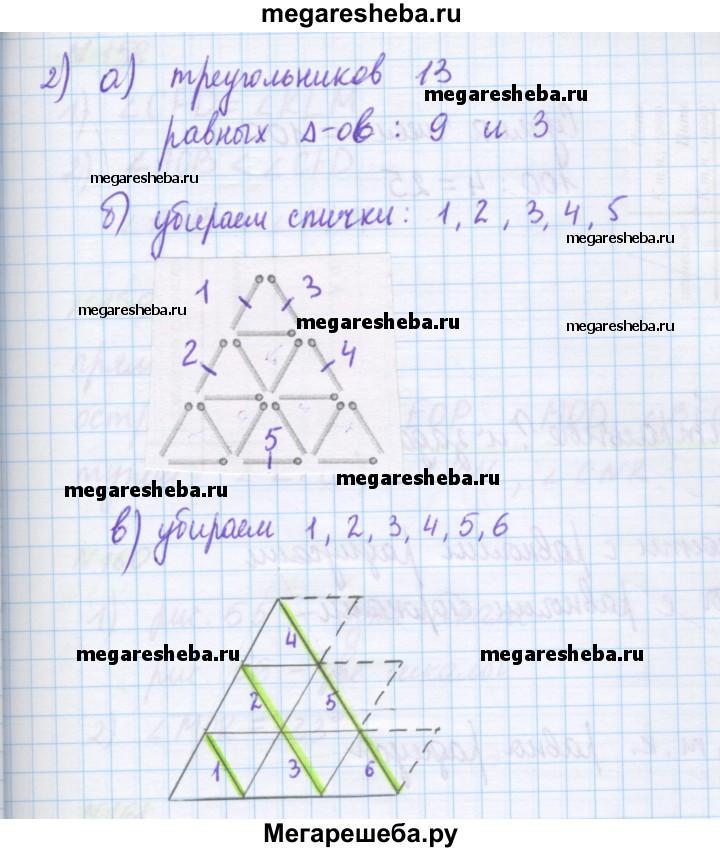 megaresheba.ru
2) а) треугольников 13
megaresheba.ru
равных Δ-ов: 9 и 3
megaresheba.ru
б) убираем спички: 1, 2, 3, 4, 5
megaresheba.ru
1 3
megaresheba.ru
megaresheba.ru
megaresheba.ru
2 4
5
megaresheba.ru
megaresheba.ru
в) убираем 1, 2, 3, 4, 5, 6
4
megaresheba.ru
megaresheba.ru
2 5
1 3 6
Мегарешеба.ру